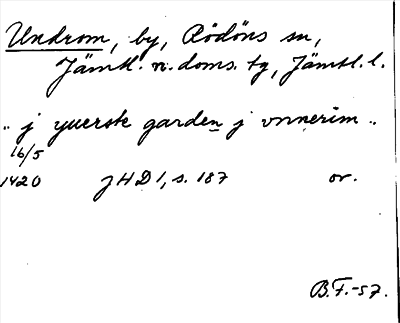 Undrom, by, Rödöns sn,
Jämtl. n. doms. tg, Jämtl. l.
.. j yuerste garden j vnnerim ..
16/5
1420 JHD 1, s. 187 or.
B.F.-57.